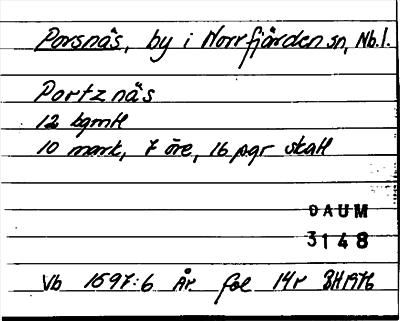 Porsnäs, by i Norrfjärden sn, Nb.l.
Portznäs
12 bgmtl
10 mark, 7 öre, 16 pgr skatt
DAUM
3148
Vb 1597:6 År fol 14r BH 1976